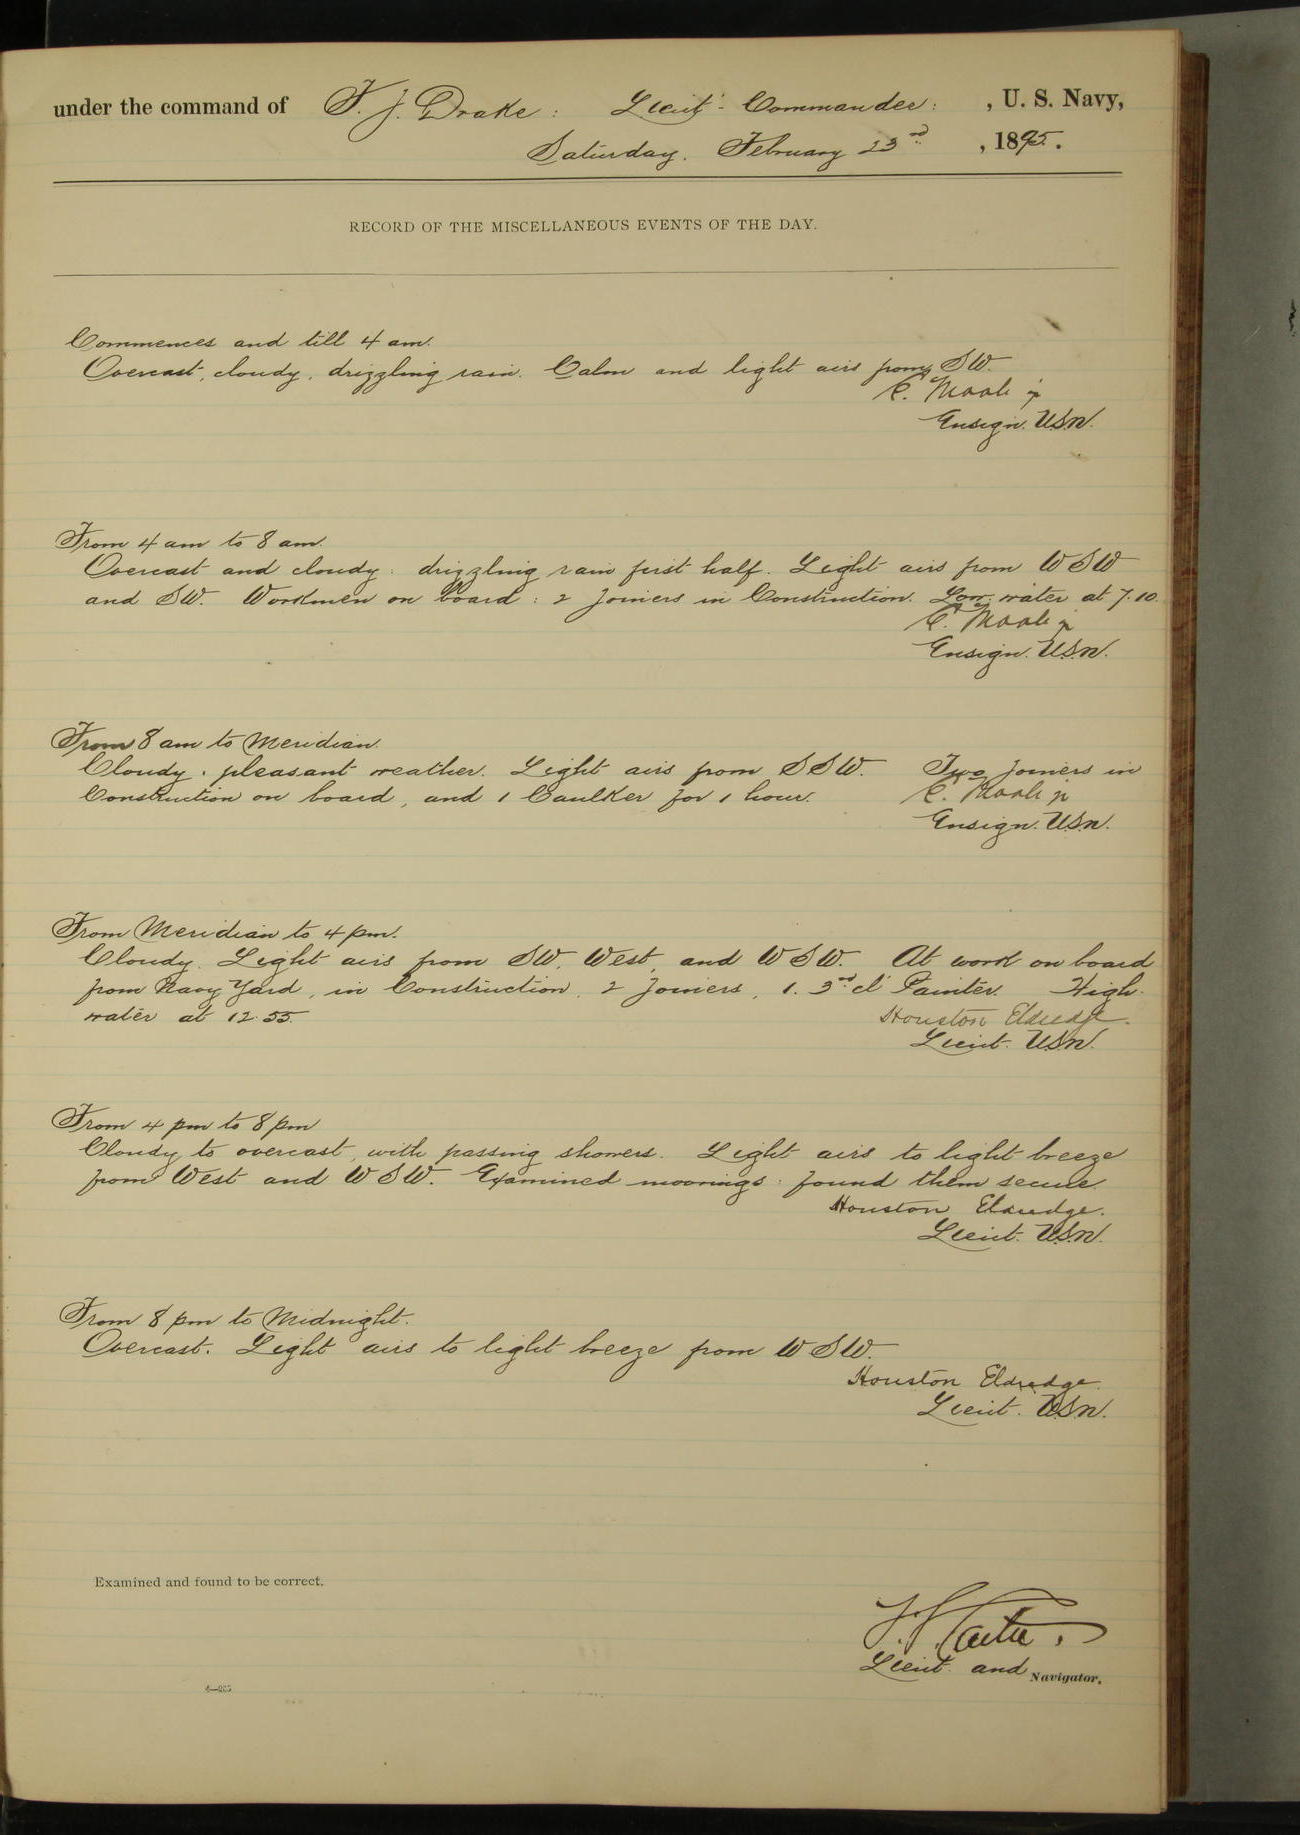 under the command of F. J. Drake : Lieut - Commander : , U. S. Navy,
Saturday. February 23rd , 1895.
RECORD OF THE MISCELLANEOUS EVENTS OF THE DAY.
Commences and till 4 am.
Overcast, cloudy, drizzling rain. Calm and light airs from SW.
C. jr
Ensign. U.S.N.
From 4 am to 8 am.
Overcast and cloudy : drizzling rain first half. Light airs from WSW
and SW. Workmen on board : 2 Joiners in Construction. Low water at 7.10.
C. jr
Ensign. U.S.N.
From 8 am to Meridian.
Cloudy. pleasant weather. Light airs from SSW. Two Joiners in
Construction on board, and 1 Caulker for 1 hour.
C. jr
Ensign. U.S.N.
From Meridian to 4 pm.
Cloudy. Light airs from SW, West, and WSW. At work on board
from Navy Yard, in Construction, 2 Joiners, 1. 3rd cl Painter. High-
water at 12.55.
Houston Eldredge.
Lieut. U.S.N.
From 4 pm to 8 pm
Cloudy to overcast, with passing showers. Light airs to light breeze
from West and WSW. Examined moorings : found them secure.
Houston Eldredge.
Lieut. U.S.N.
From 8 pm to Midnight.
Overcast. Light airs to light breeze from WSW.
Houston Eldredge.
Lieut. U.S.N.
Examined and found to be correct.
Lieut. and Navigator.